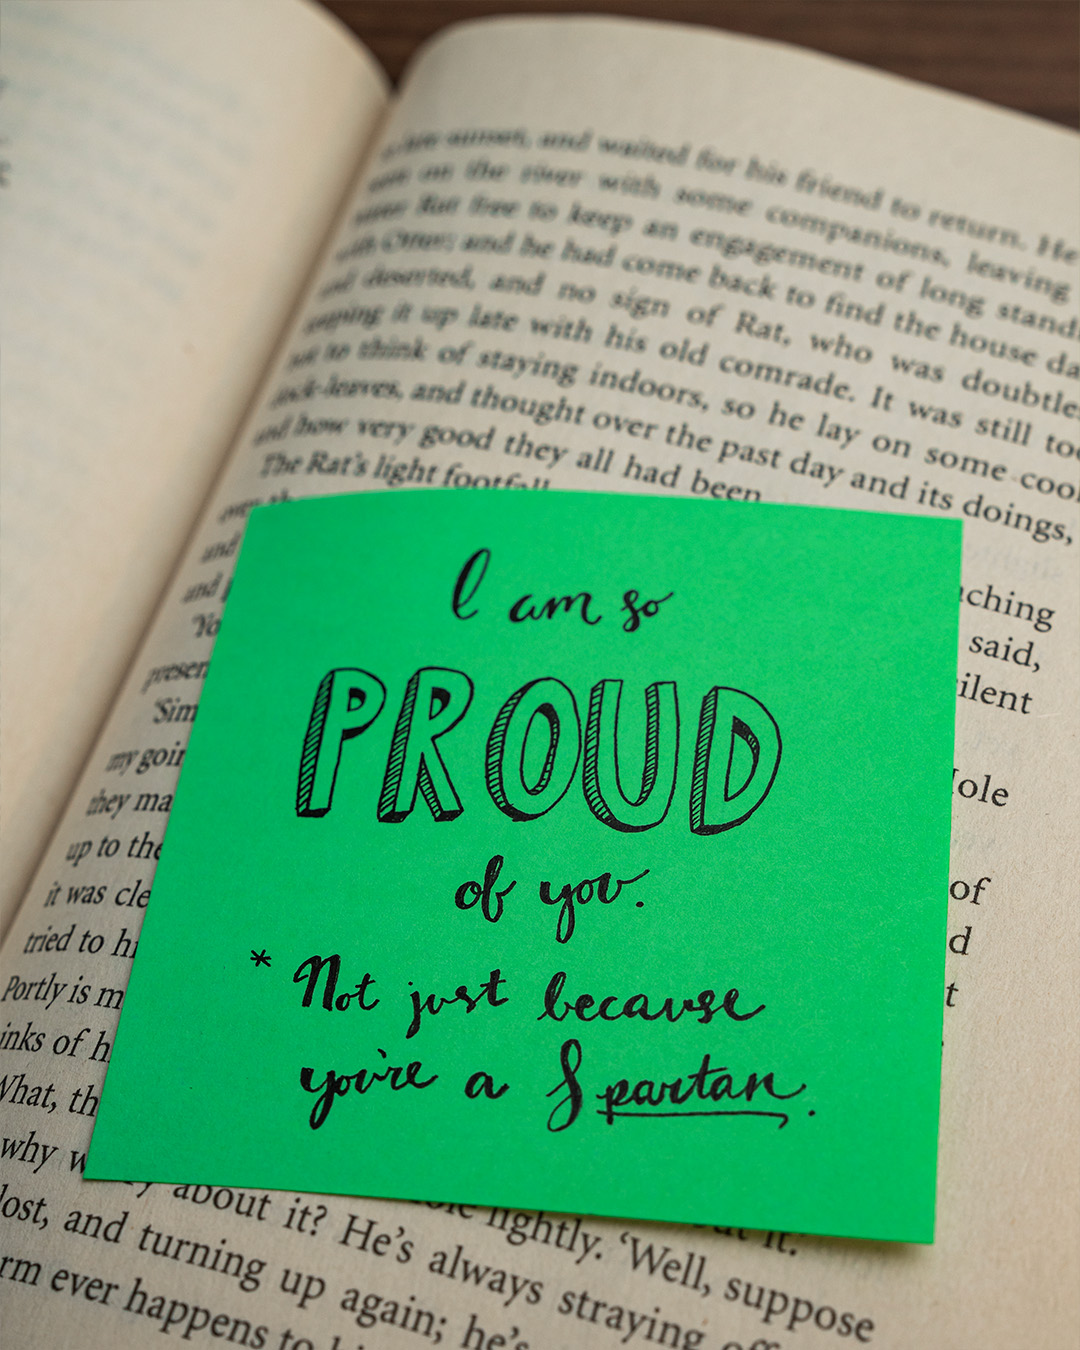 sunset, and waited for his friend to return. He
on the river with some companions, leaving
Rat free to keep an engagement of long stand
with Otter; and he had come back to find the house da
and deserted, and no sign of Rat, who was doubtle
keeping it up late with his old comrade. It was still too
to think of staying indoors, so he lay on some cool
dock-leaves, and thought over the past day and its doings,
and how very good they all had been.
The Rat's light footfall
over th
and
and
'Yo
presen
'Sim
my goin
they ma
up to the
it was cle
tried to hi
Portly is m
inks of h
What, th
why w
I am so
PROUD
of you.
* Not just because
you're a Spartan.
aching
said,
silent
Mole
of
d
t
about it? lightly. 'Well, suppose
lost, and turning up again; he's always straying off
rm ever happens to